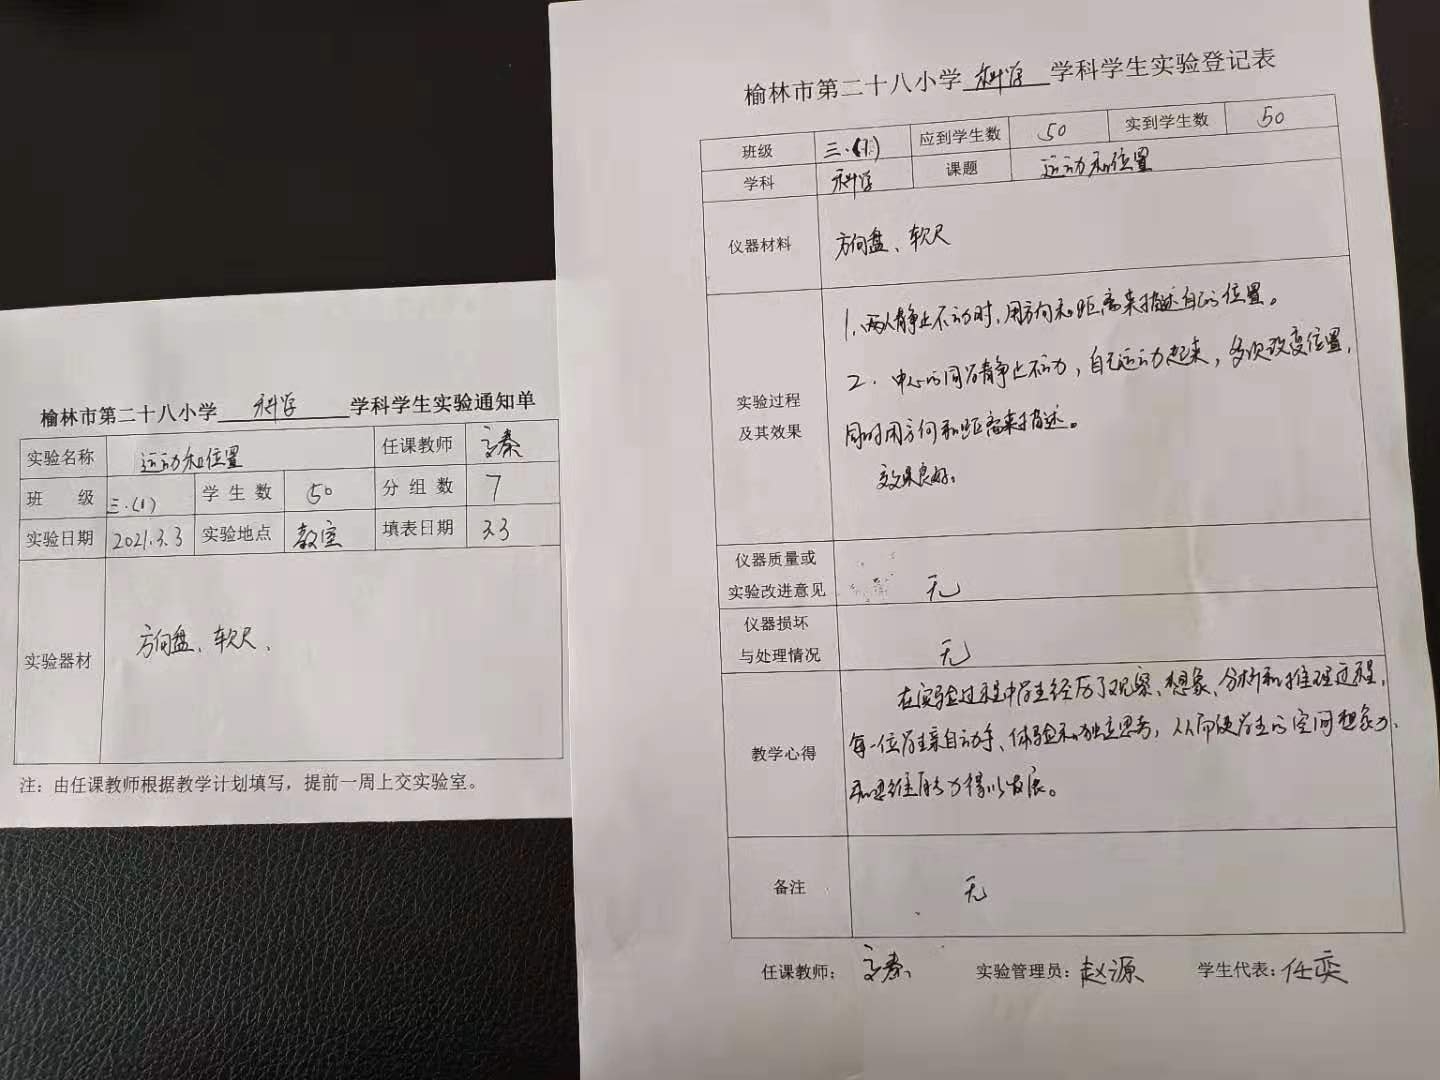 榆林市第二十八小学 科学 学科学生实验通知单
实验名称 运动和位置 任课教师 秦
班 级 三.(1) 学生数 50 分组数 7
实验日期 2021.3.3 实验地点 教室 填表日期 3.3
实验器材 方向盘、软尺、
注：由任课教师根据教学计划填写，提前一周上交实验室。
榆林市第二十八小学 科学 学科学生实验登记表
班级 三.(1) 应到学生数 50 实到学生数 50
学科 科学 课题 运动和位置
仪器材料 方向盘、软尺
实验过程
及其效果
1、两人静止不动时，用方向和距离来描述自己的位置。
2. 中心的同学静止不动，自己运动起来，多次改变位置，
同时用方向和距离来描述。
效果良好。
仪器质量或
实验改进意见 无
仪器损坏
与处理情况 无
教学心得
在实验过程中学生经历了观察、想象、分析和推理过程，
每一位学生亲自动手、体验和独立思考，从而使学生的空间想象力、
和思维能力得以发展。
备注 无
任课教师： 秦 实验管理员：赵源 学生代表：任奕